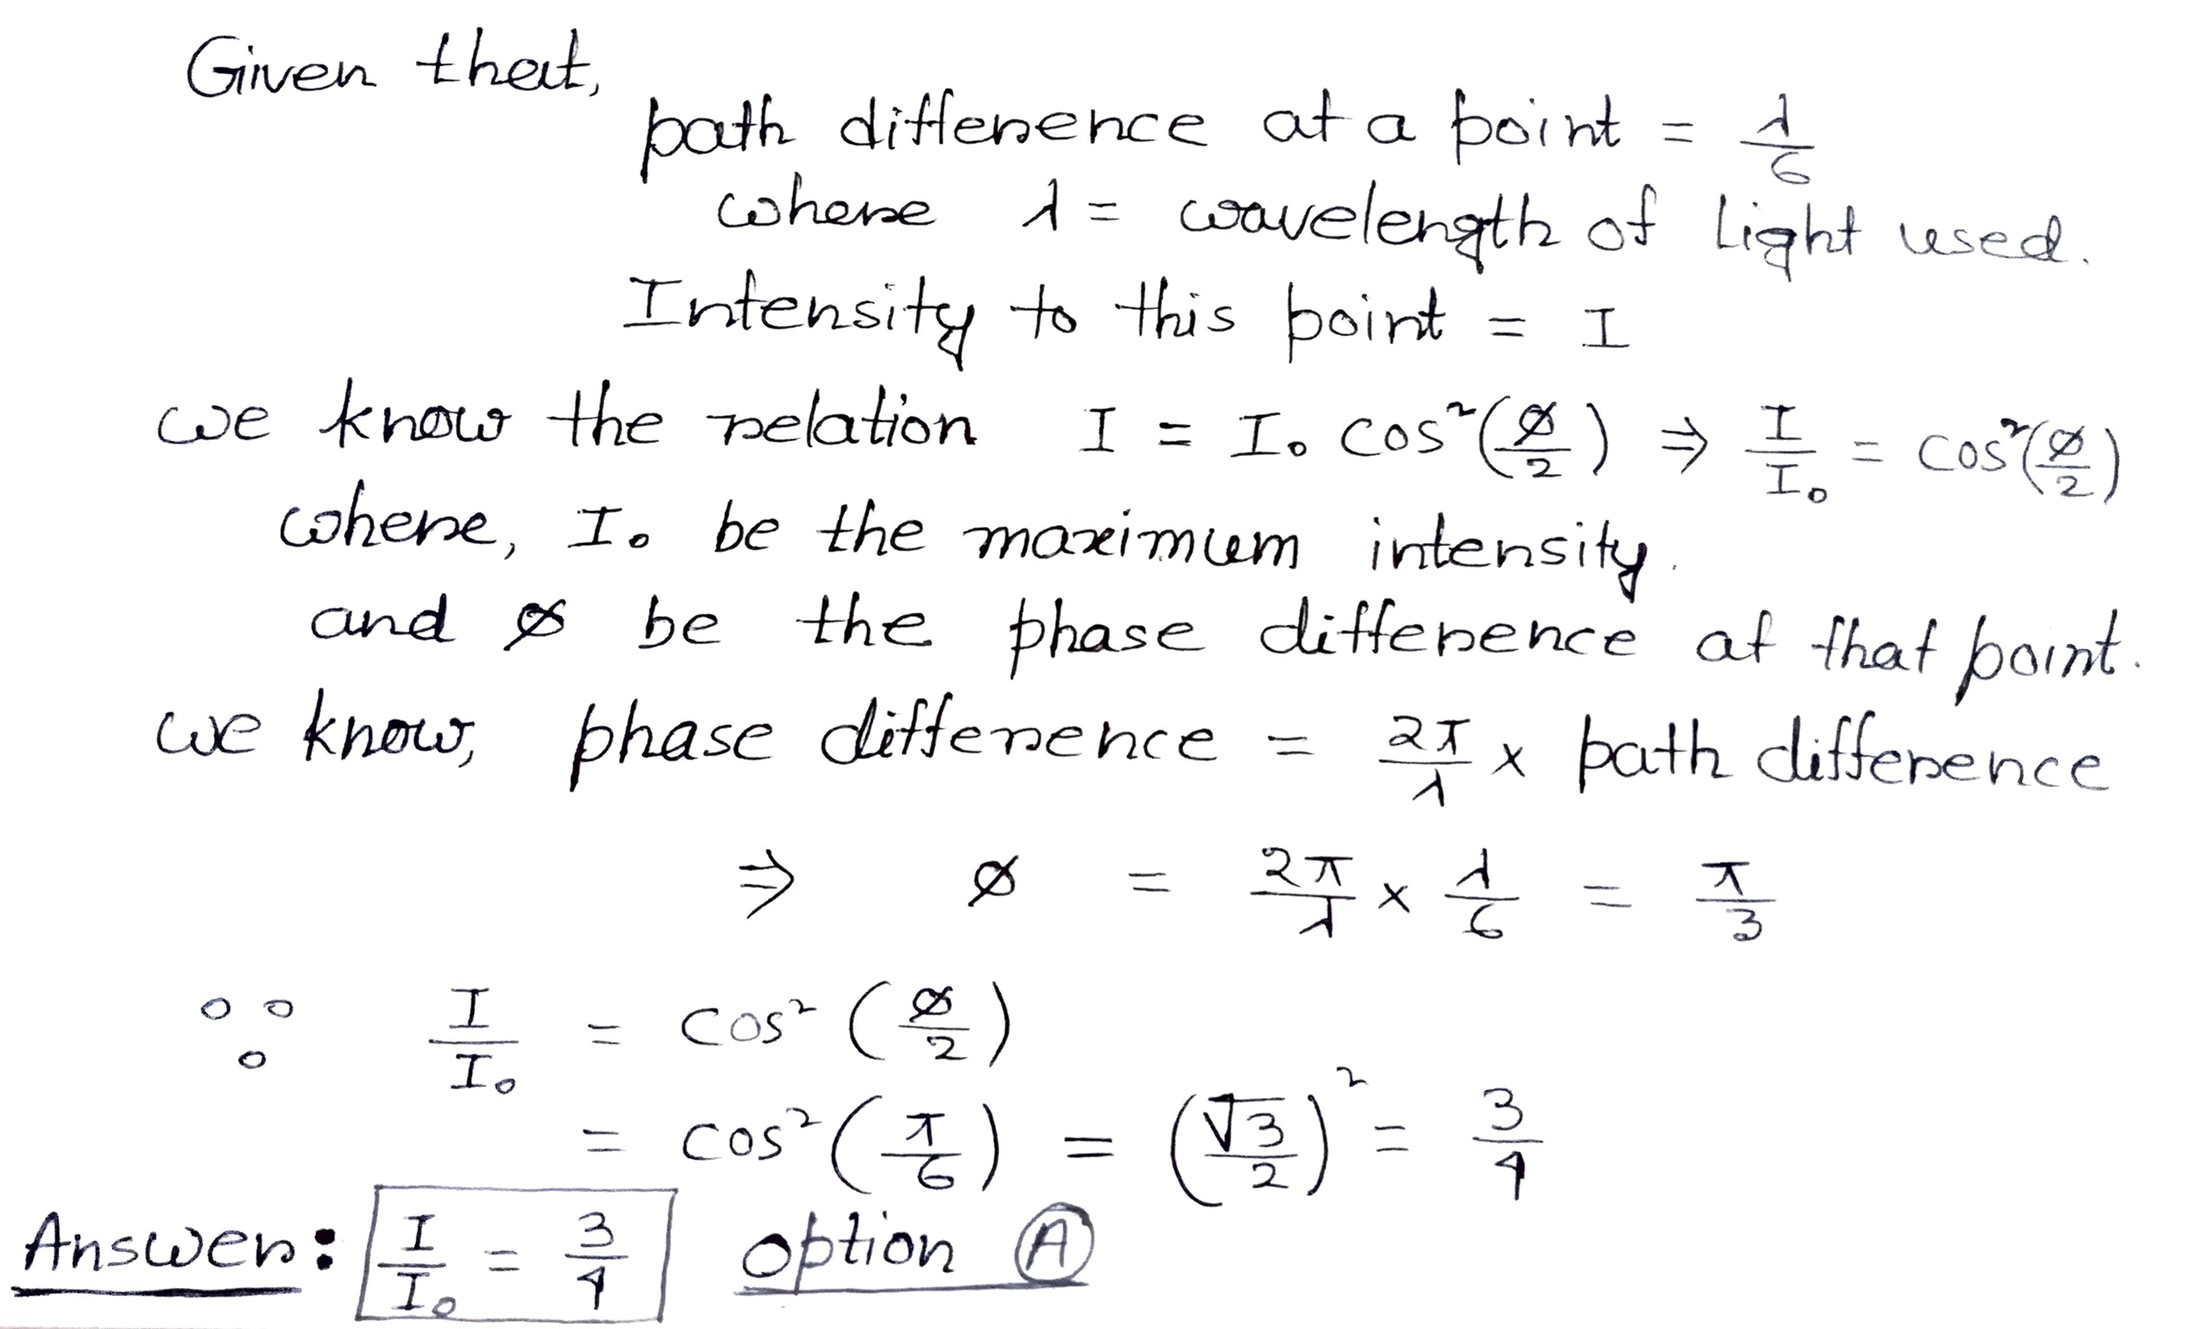 Given that,
path difference at a point = λ/6
where λ = wavelength of Light used.
Intensity to this point = I
we know the relation I = I₀ cos²(ø/2) ⇒ I/I₀ = cos²(ø/2)
where, I₀ be the maximum intensity.
and ø be the phase difference at that point.
we know, phase difference = 2π/λ × path difference
⇒ ø = 2π/λ × λ/6 = π/3
∵ I/I₀ = cos² (ø/2)
= cos² (π/6) = (√3/2)² = 3/4
Answer: I/I₀ = 3/4 option Ⓐ